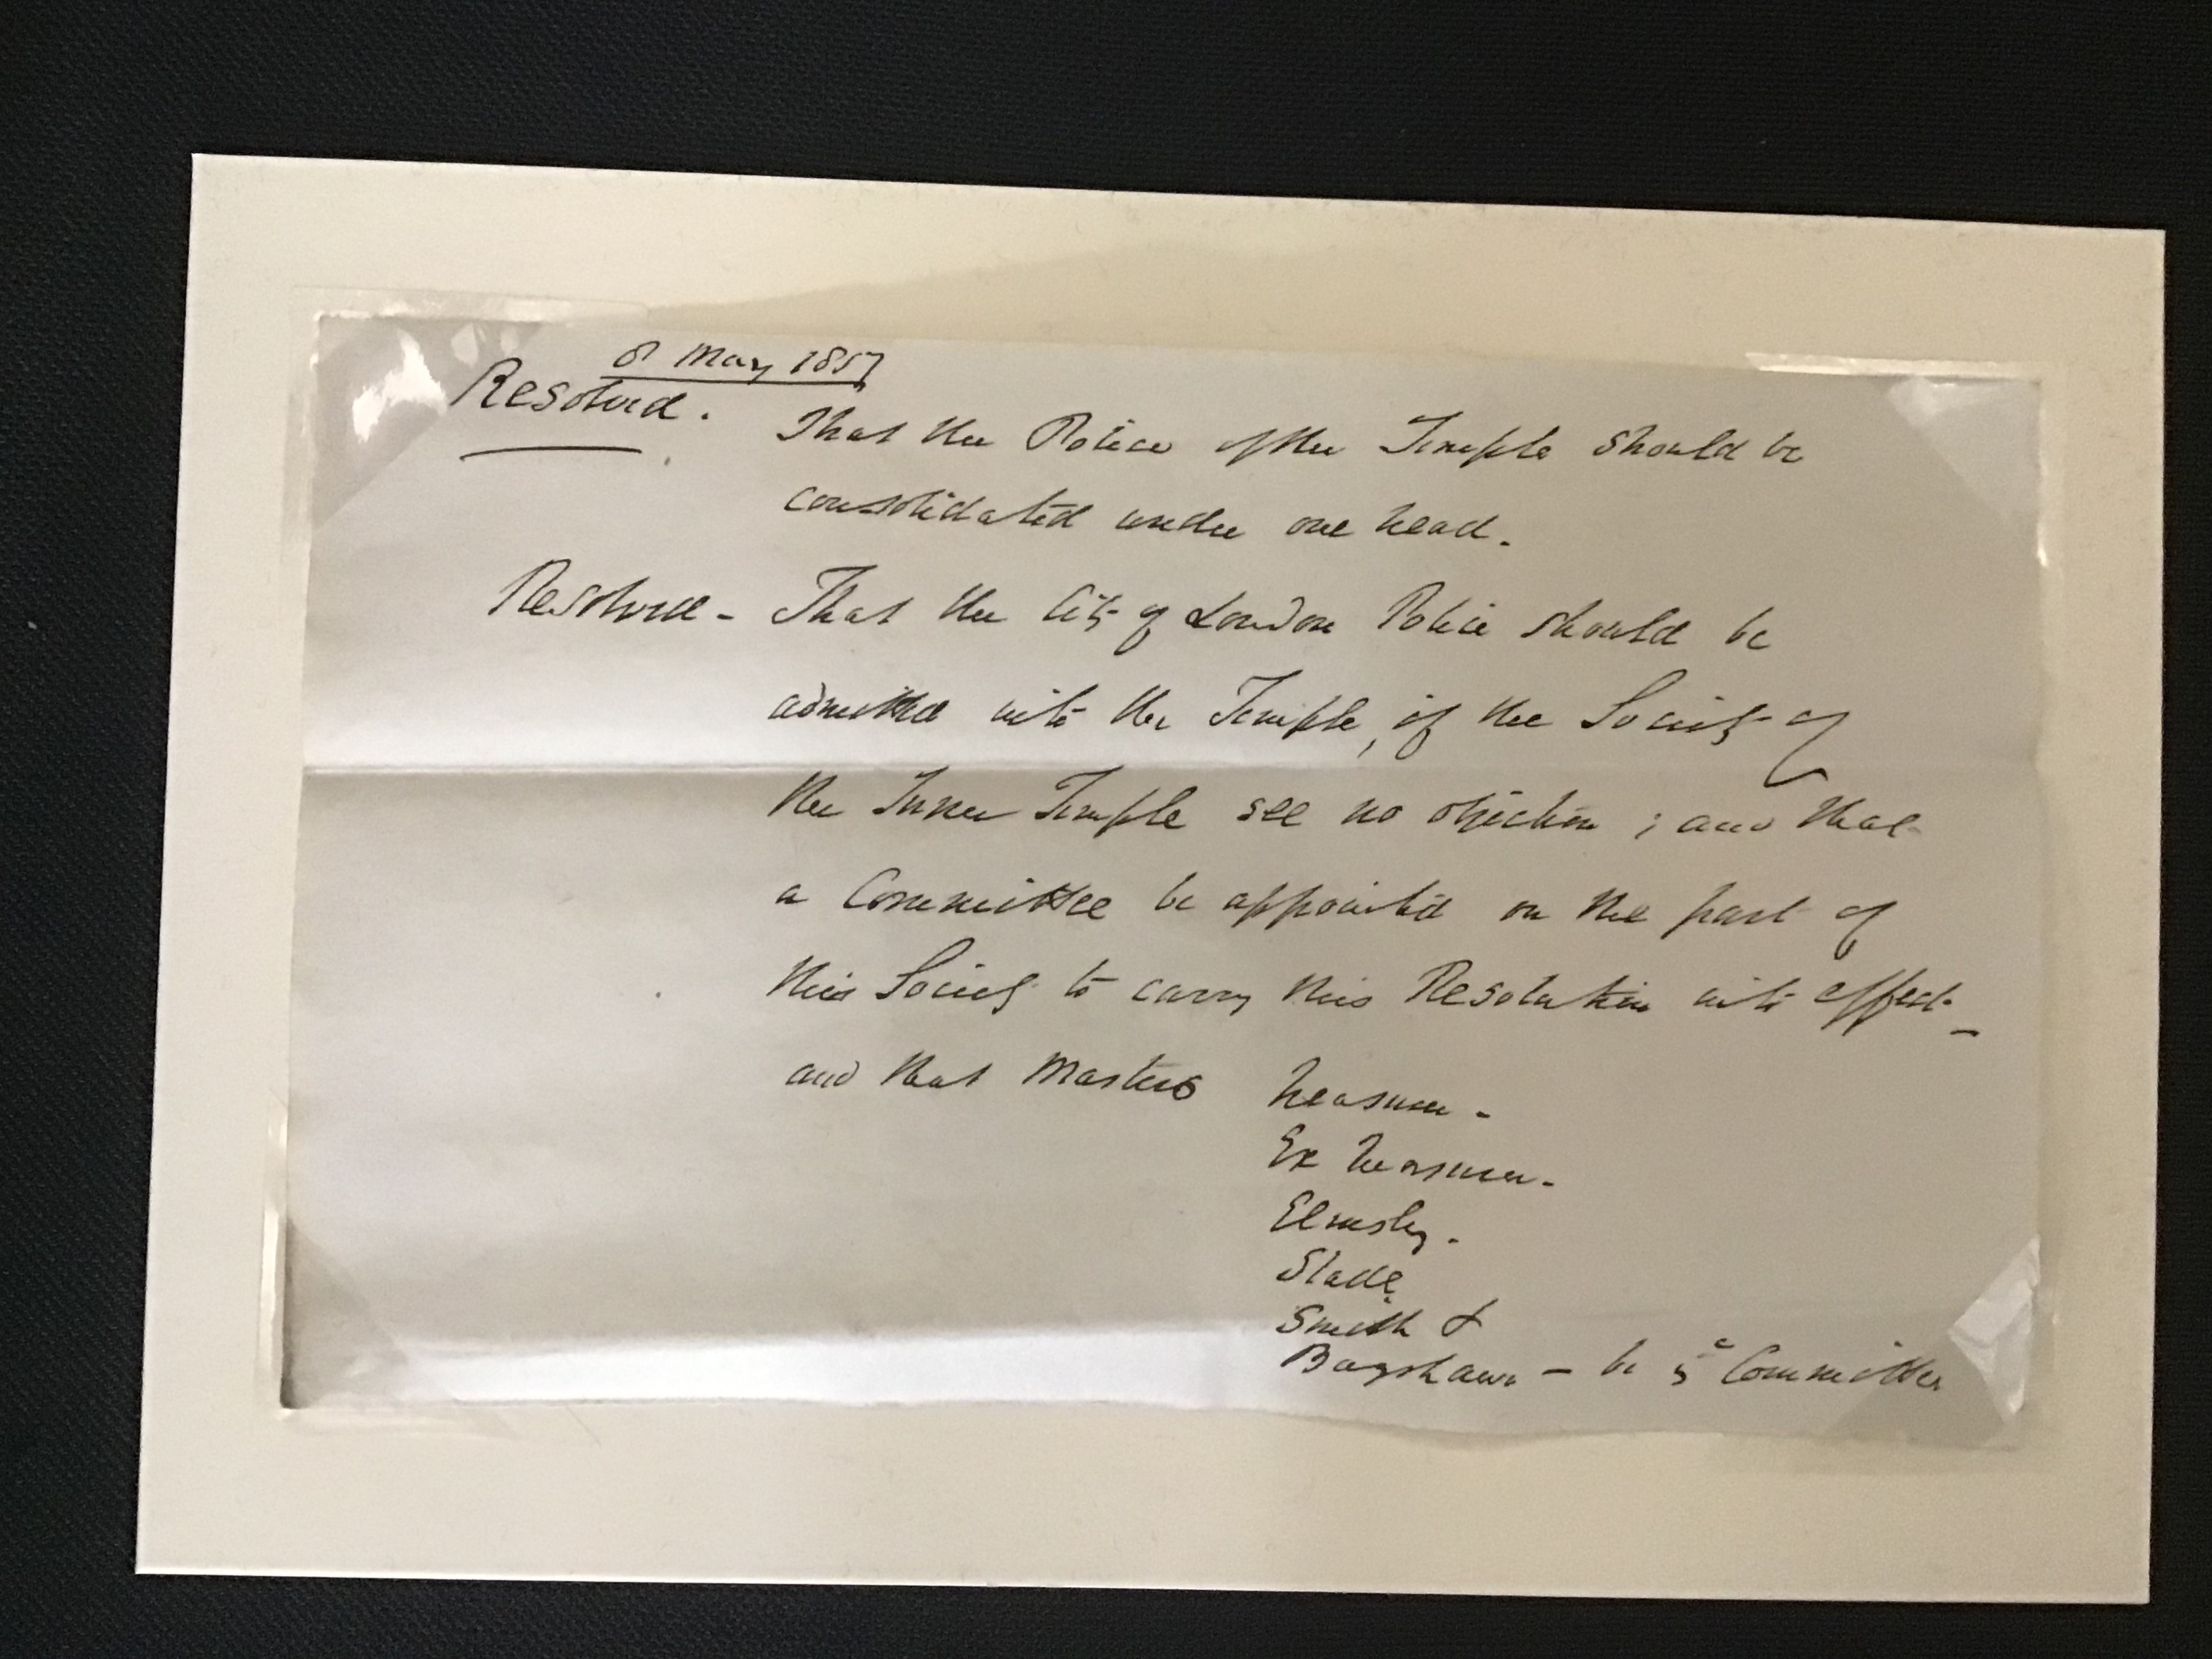 8 May 1857
Resolved. That the Police of the Temple should be
consolidated under one head.
Resolved - That the City of London Police should be
admitted into the Temple, if the Society of
the Inner Temple see no objection; and that
a Committee be appointed on the part of
this Society to carry this Resolution into effect -
and that Masters Treasurer -
Ex Treasurer -
Elmsley.
Slade
Smith &
Bagshawe - be Committee